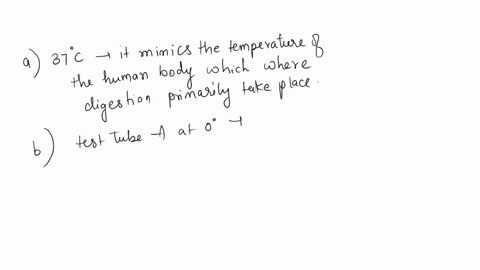 a) 37°C → it mimics the temperature of
the human body which where
digestion primarily take place.
b) test tube A at 0° →